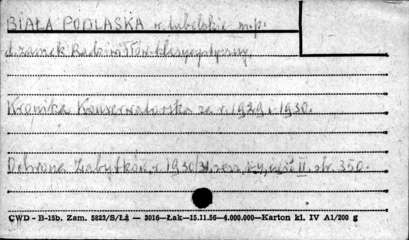 BIAŁA PODLASKA w. lubelskie m.p.
d. zamek Radziwiłłów klasycystyczny
Kronika Konserwatorska za r. 1929 i 1930.
Ochrona Zabytków, r. 1930/31, część II, str. 350.
CWD - B-15b. Zam. 5823/S/Łź — 3016—Łak—15.11.56—4.000.000—Karton kl. IV A1/200 g